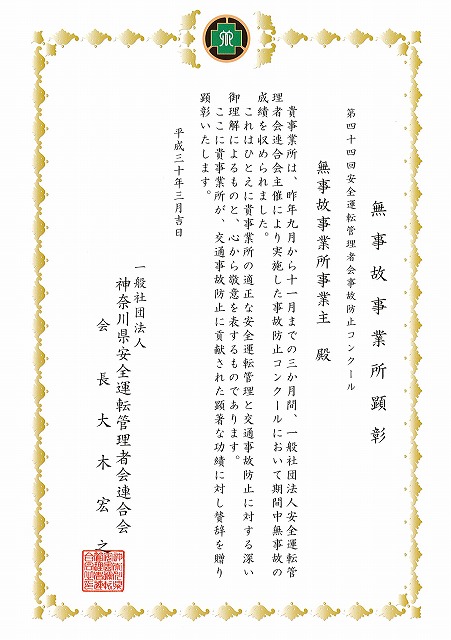 無事故事業所顕彰
第四十四回安全運転管理者会事故防止コンクール
無事故事業所事業主 殿
貴事業所は、昨年九月から十一月までの三か月間、一般社団法人安全運転管
理者会連合会主催により実施した事故防止コンクールにおいて期間中無事故の
成績を収められました。
これはひとえに貴事業所の適正な安全運転管理と交通事故防止に対する深い
御理解によるものと、心から敬意を表するものであります。
ここに貴事業所が、交通事故防止に貢献された顕著な功績に対し賛辞を贈り
顕彰いたします。
平成三十年三月吉日
一般社団法人
神奈川県安全運転管理者会連合会
会長大木宏之